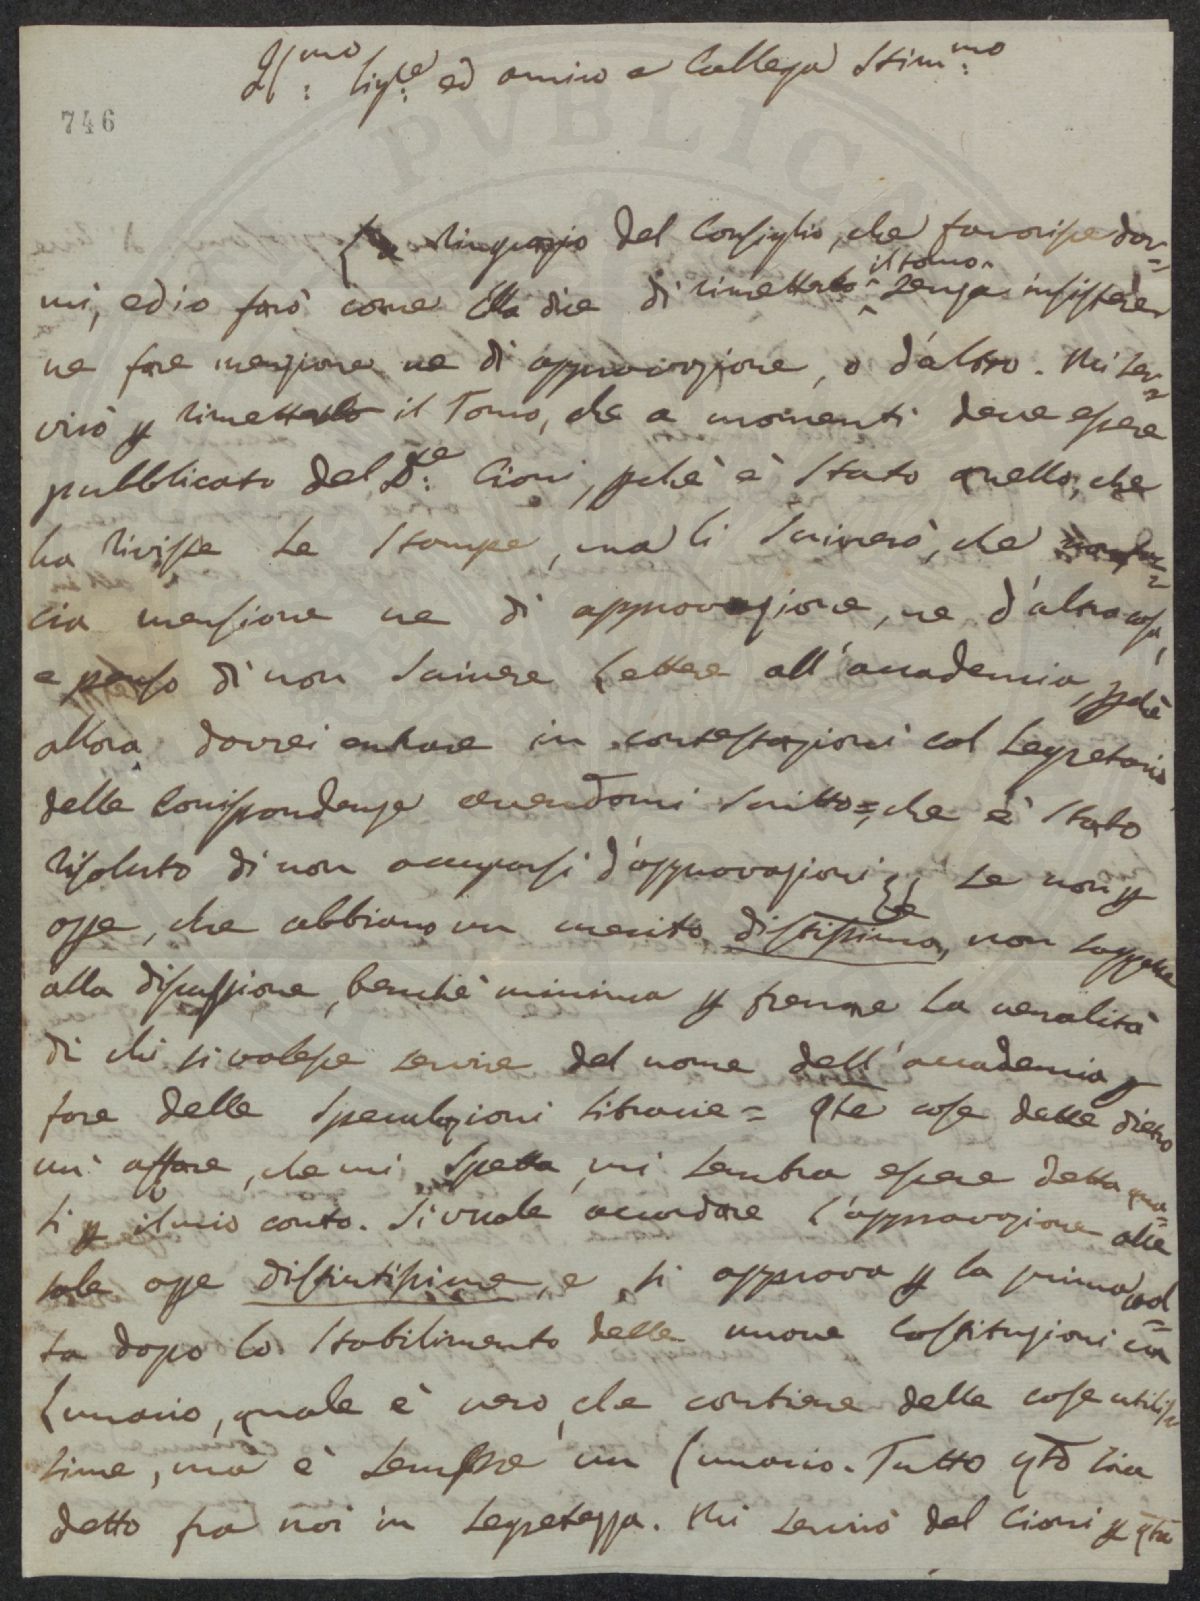 Ill:mo Sig:re ed amico e Collega Stim:mo
746
PVBLICA
La ringrazio del Consiglio, che favorisce dar=
mi, ed io farò come Ella dice di rimetterlo il tomo senza insistere
ne fare menzione ne di approvazione, o d'altro. Mi ser=
virò p rimetterlo il Tomo, che a momenti deve essere
pubblicato del D:re Cioni, pchè è stato quello, che
ha riviste le stampe, ma li scriverò, che non fac=
cia mensione ne di approvazione, ne d'altra cosa,
e penso di non scrivere Lettere all'accademia, pchè
allora dovrei entrare in contestazioni col Segretario
delle Corrispondenze avendomi scritto=, che è stato
risoluto di non occuparsi d'approvazioni, se non p
opre, che abbiano un merito distintissimo, non soggette
alla discussione, benchè minima p frenare la venalità
di chi si volesse servire del nome dell'accademia p
fare delle speculazioni librarie= qte cose dette dietro
un'affare, che mi spetta, mi sembra essere detta qua=
si p il mio conto. Si vuole accordare l'approvazione alle
sole opre distintissime, e si approva p la prima vol=
ta dopo lo stabilimento delle nuove Costituzioni un
Lunario, quale è vero, che contiene delle cose utilis=
sime, ma è sempre un Lunario. Tutto qto sia
detto fra noi in segretezza. Mi servirò del Cioni p qta